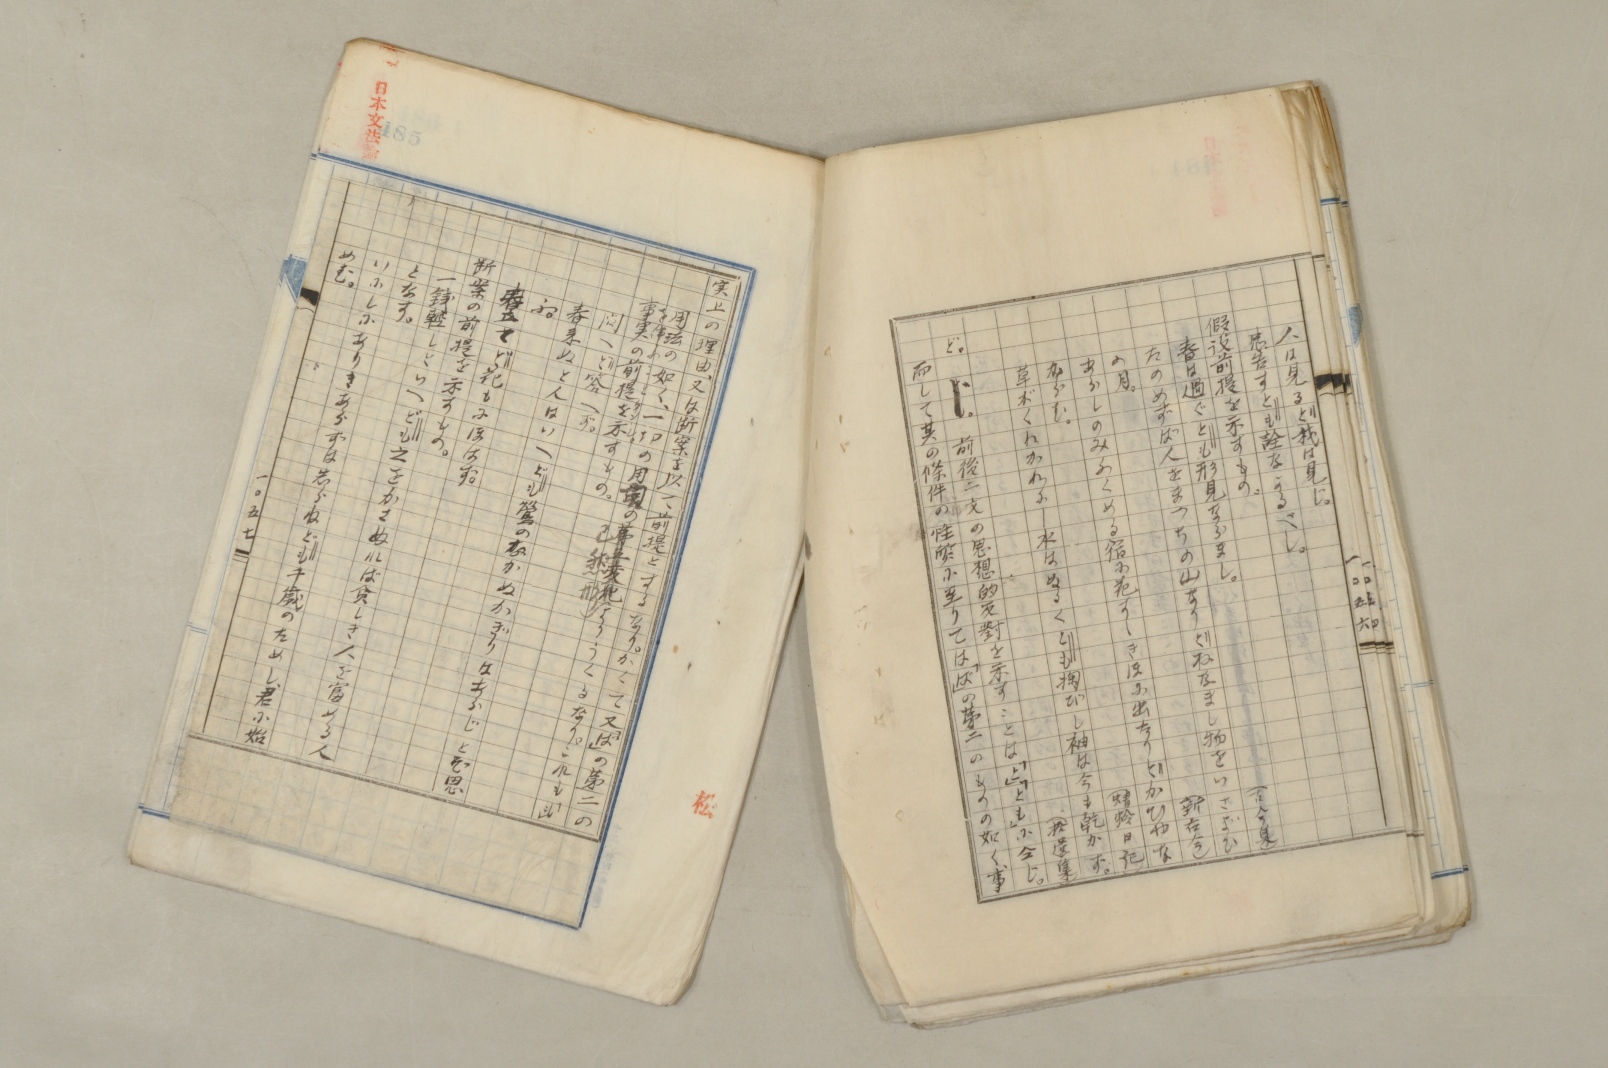 人は見るど我は見じ。
忠告すとも詮なかるべし。
假設前提を示すもの。
春は過ぐとも形見ならまし。
たのめずば人をまつちの山なりどねなまし物をいさよひ
の月。
あらしのみふくめる宿に花すゝきほに出たりどかひやな
からむ。
草がくれかれにし水はぬるくとも掬びし袖は今も乾かず。
ど。 前後二文の思想的反對を示すことは「と」「とも」に仝じ。
而して其の條件の性質に至りては「ば」の第二のものの如く、事
(古今集
(新古今
(蜻蛉日記
(拾遺集
一〇五六
実上の理由、又は断案を以て前提とするなり。かくて又「ば」の第二の
用法の如く、一つは用言の已然形よりうくるなり。これも
事実の前提を示すもの。
問へど答へず。
春来ぬと人はいへども鶯のなかぬかぎりはあらじとぞ思
ふ。
ど花もにほはず。
断案の前提を示すもの。
一銭軽しといへども之をかさぬれば貧しき人を富める人
となす。
いにしにありきあらずは知らねども千歳のためし君に始
めむ。
一〇五七
日本文法
485
松